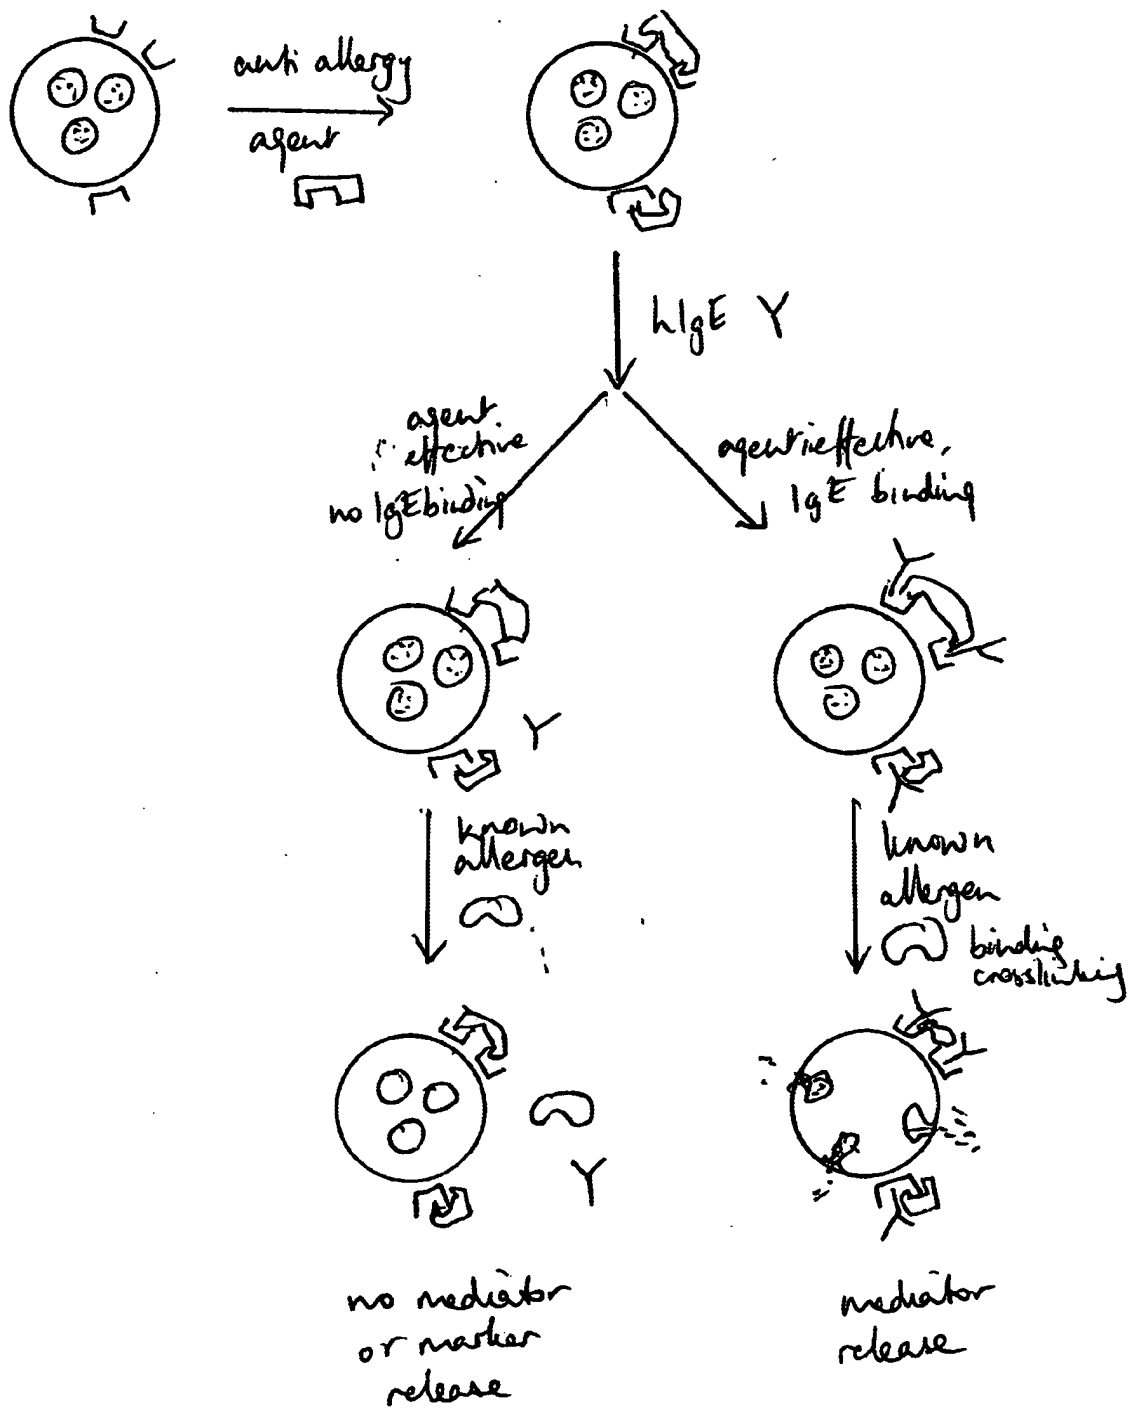 anti allergy
agent
hIgE Y
agent
effective
no IgE binding
agent ineffective,
IgE binding
known
allergen
known
allergen
binding
crosslinking
no mediator
or marker
release
mediator
release